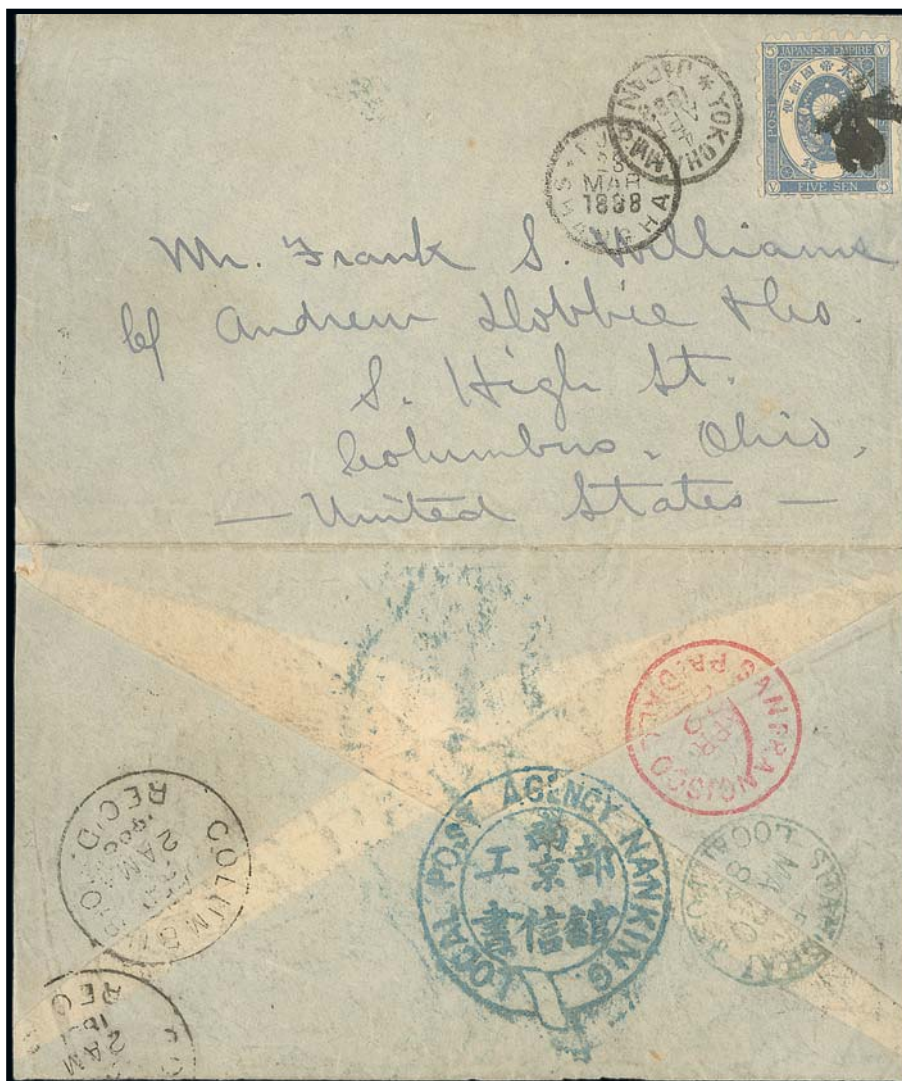 JAPANESE EMPIRE
5 V
POST
FIVE SEN
V 5
YOKOHAMA JAPAN
SHANGHAI
28
MAR
1888
Mr. Frank S. Williams
c/ Andrew Dobbie & Co.
S. High St.
Columbus, Ohio,
— United States —
SAN FRANCISCO
PAID ALL
APR
LOCAL POST AGENCY NANKING.
南京
工部
書信館
SHANGHAI
LOCAL POST
COLUMBUS, O.
2 AM
REC'D.
2 AM
REC